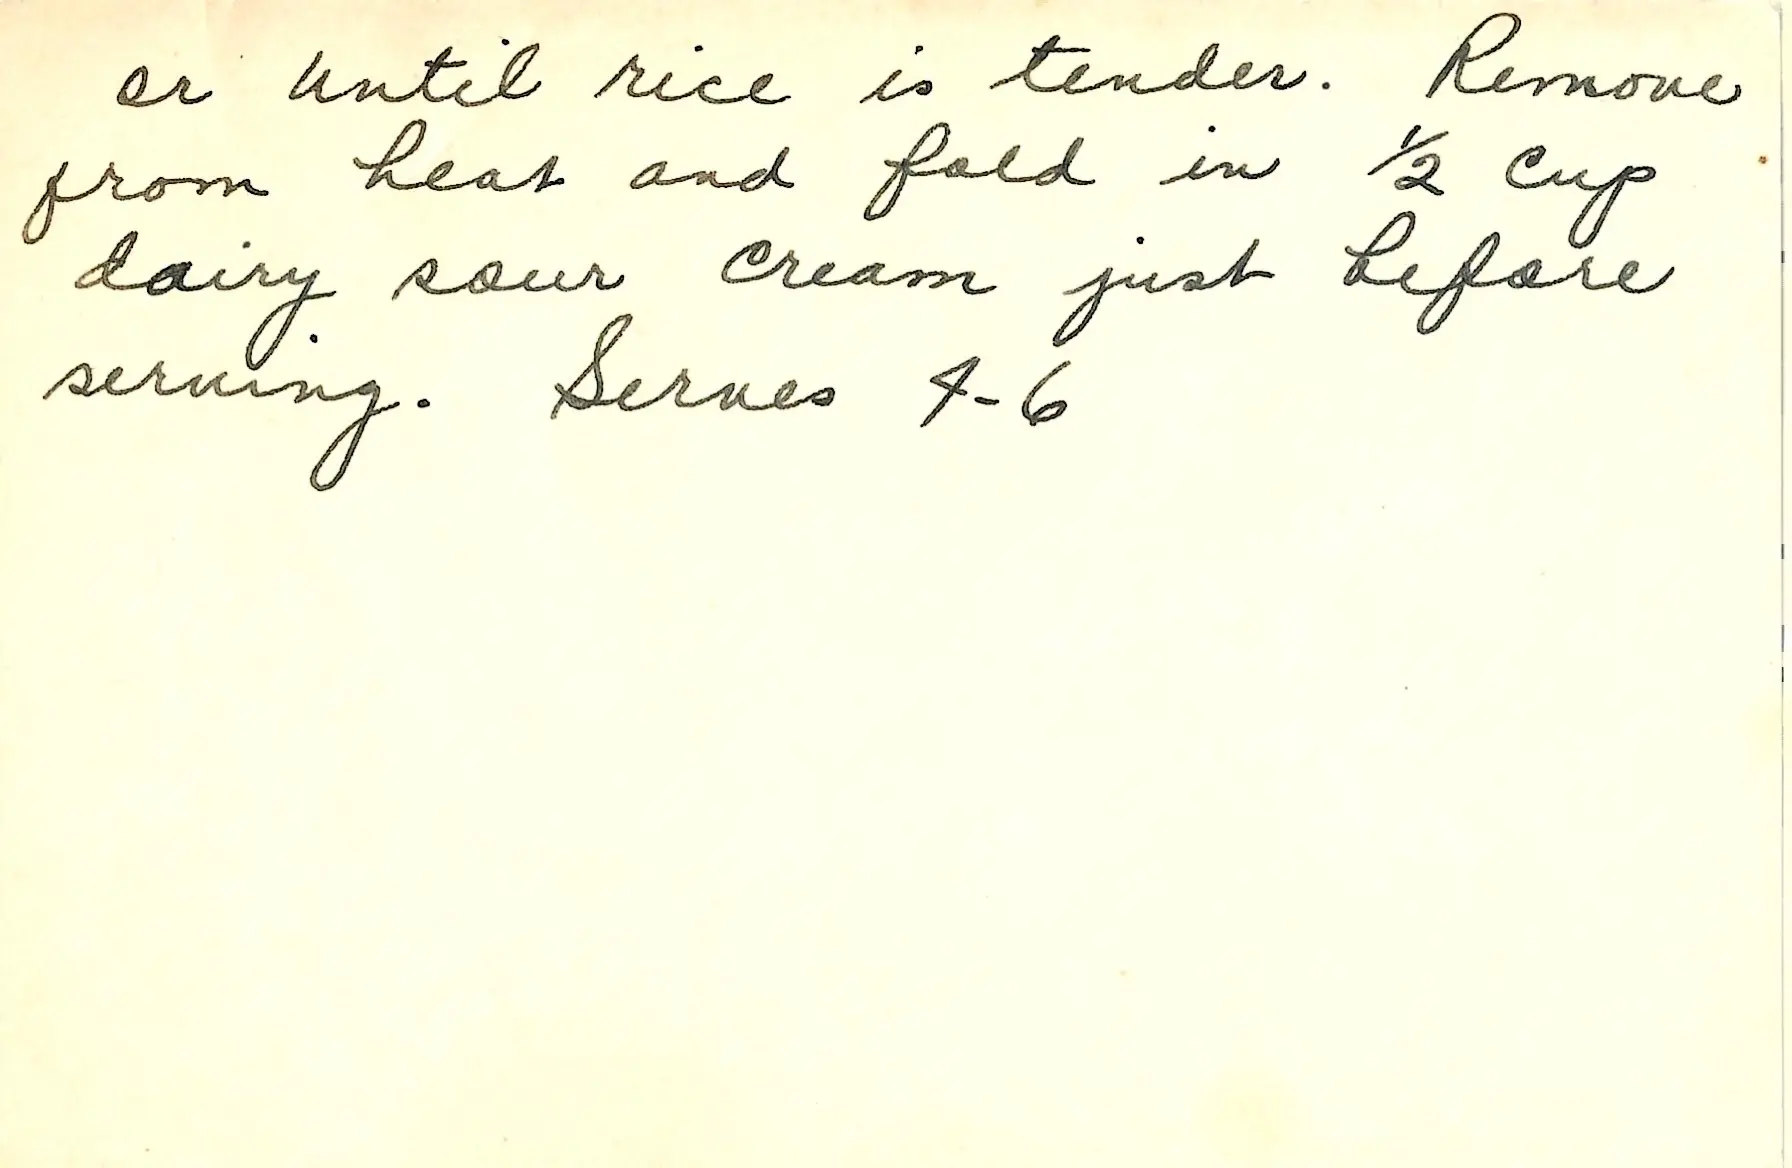 or until rice is tender. Remove
from heat and fold in 1/2 cup
dairy sour cream just before
serving. Serves 4-6